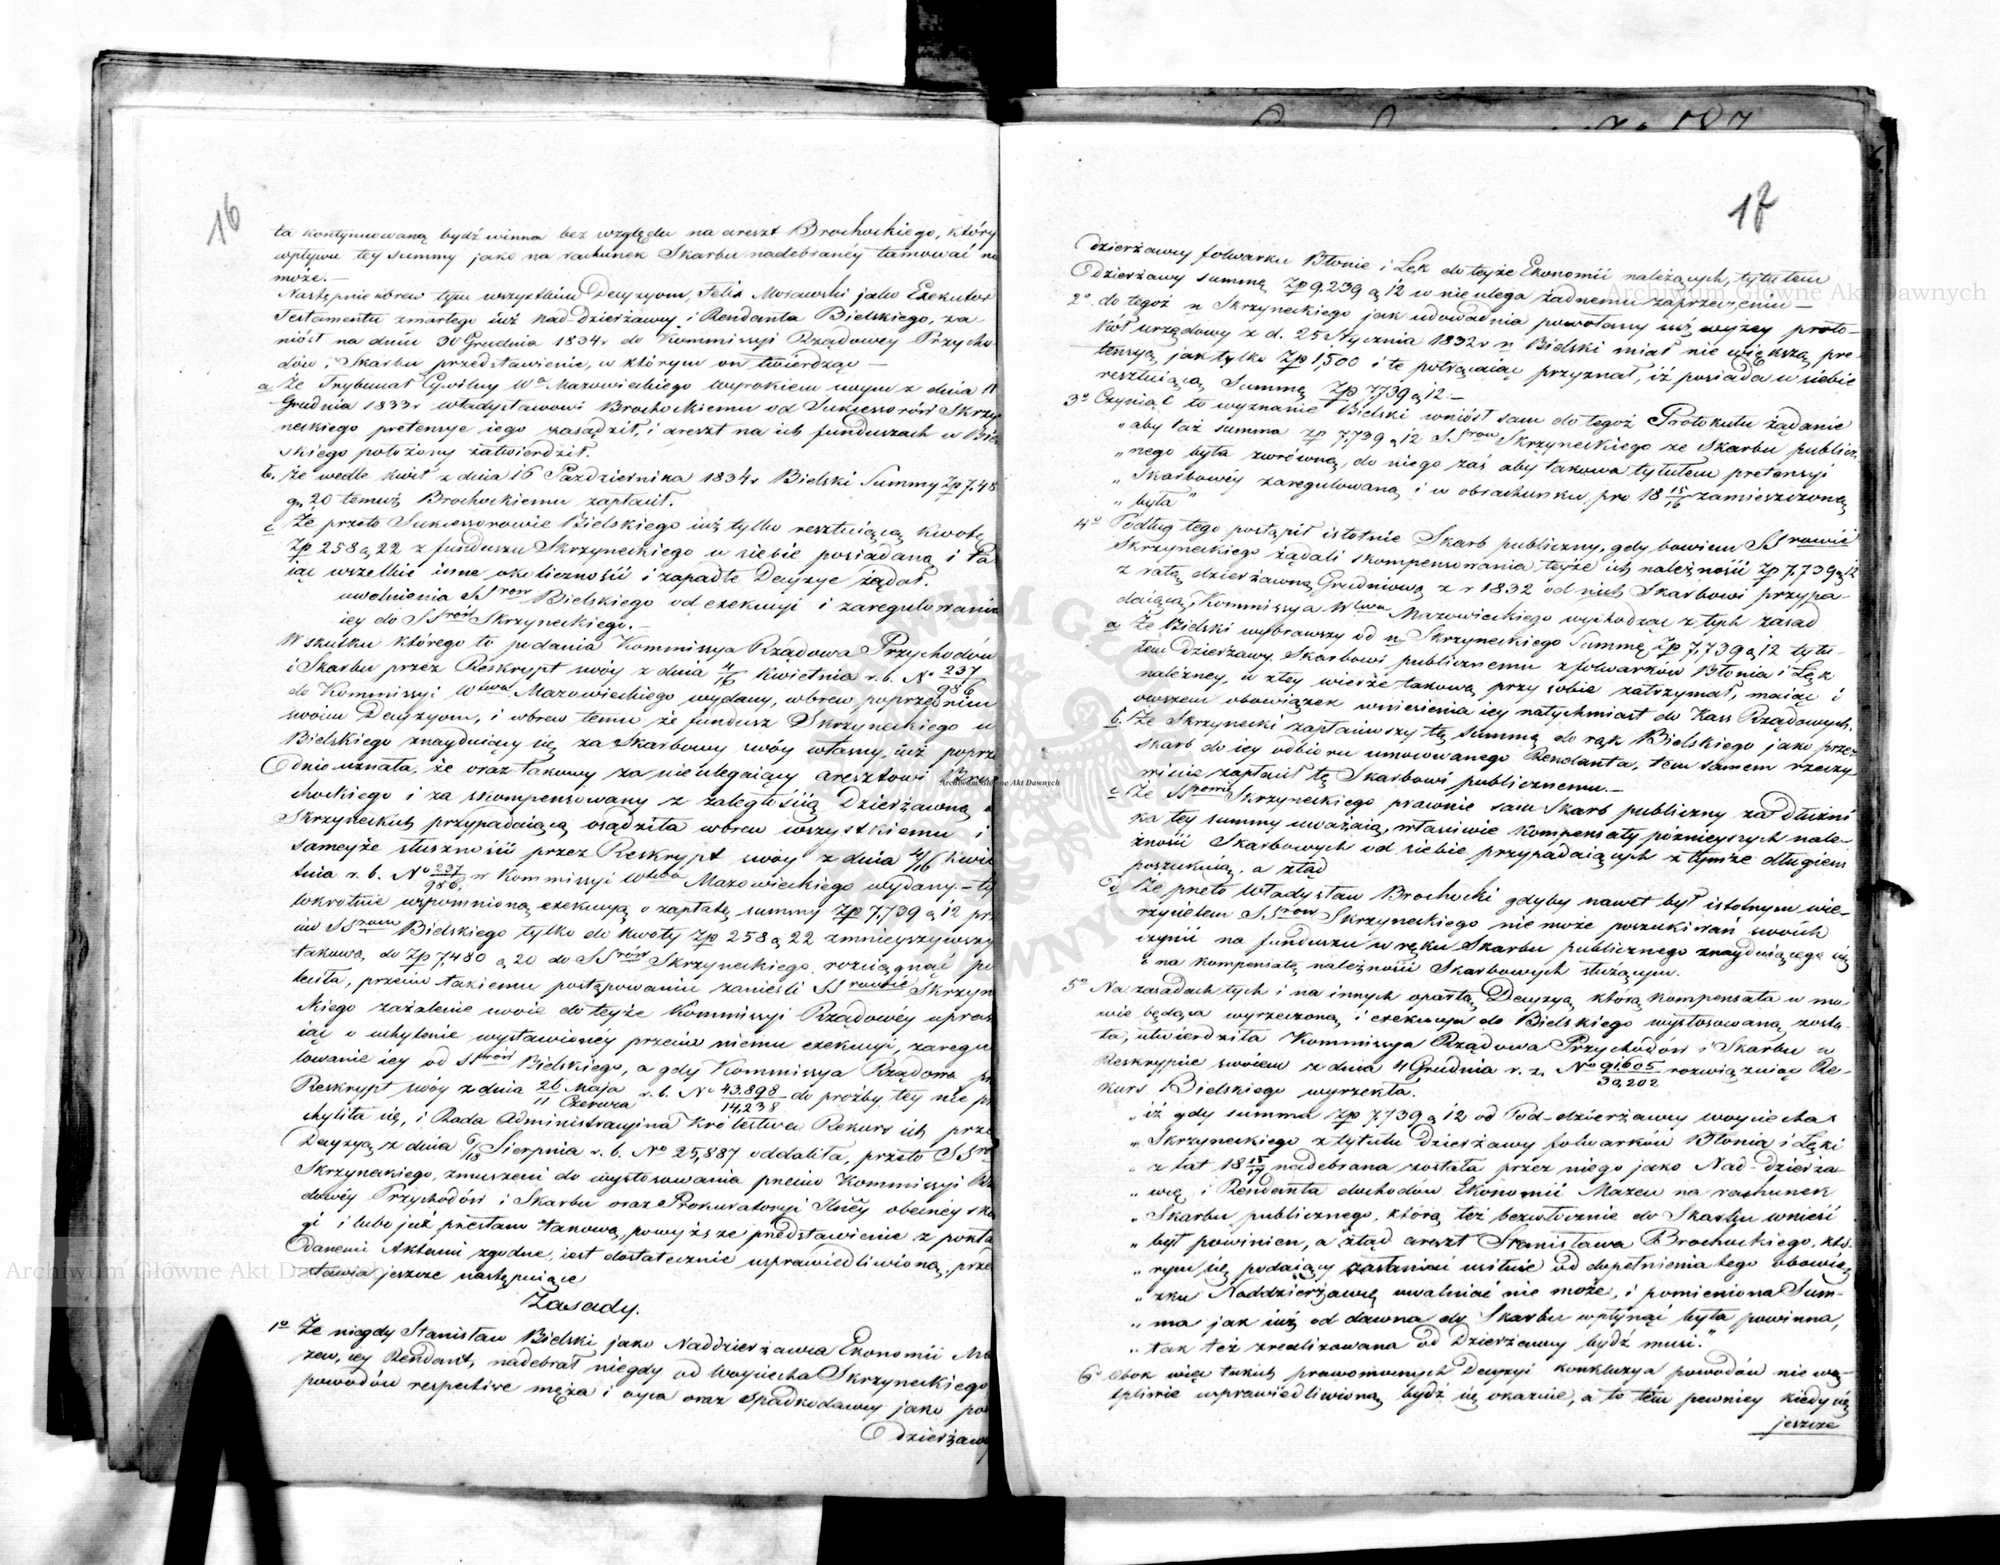 16
ta kontynuowaną bydź winna bez względu na areszt Brochockiego, który
wpływu tey summy jako na rachunek Skarbu nadebranéy tamować n
może.—
Następnie wbrew tym wszystkim Decyzyom, Felix Morawski jako Exekutor
Testamentu zmarłego już Nad-dzierżawcy i Rendanta Bielskiego, za
niósł na dniu 30 Grudnia 1834 r do Kommissyi Rządowey Przycho
dów i Skarbu przedstawienie, w którym on twierdząc —
a. Że Trybunał Cywilny Wa Mazowieckiego wyrokiem swym z dnia 11
Grudnia 1833 r Władysławowi Brochockiemu od Sukcessorów Skrzy
neckiego pretensye iego zasądził, i areszt na ich funduszach u Biel
skiego położony zatwierdził.
b. że wedle kwit z dnia 16 Października 1834 r Bielski Summy Zp 7,48
gr. 20 temuż Brochockiemu zapłacił.
c Że przeto Sukcessorowie Bielskiego już tylko resztuiącą kwotę
Zp 258 g 22 z funduszu Skrzyneckiego u siebie posiadaną i ta
iąc wszelkie inne okoliczności i zapadłe Decyzye żądał.
uwolnienia SSrów Bielskiego od exekucyi i zaregulowania
iey do SSrów Skrzyneckiego.—
W skutku którego to podania Kommissya Rządowa Przychodów
i Skarbu przez Reskrypt swóy z dnia 4/16 Kwietnia r. b. No 237/986
do Kommissyi Wtwa Mazowieckiego wydany, wbrew poprzednim
swoim Decyzyom, i wbrew temu że fundusz Skrzyneckiego u
Bielskiego znayduiący się za Skarbowy swóy własny, iuż poprze
dnio uznała, że oraz takowy za nieulegaiący aresztowi Bro
chockiego i za skompensowany z zaległością Dzierżawną
Skrzyneckich przypadaiącą osądziła wbrew wszystkiemu i
sameyże słuszności przez Reskrypt swóy z dnia 4/16 Kwie
tnia r. b. No 237/986. w Kommissyi Wtwa Mazowieckiego wydany.— ty
lokrotnie wspomnioną exekucyą o zapłatę summy Zp 7,739 g 12 prze
iw SSrom Bielskiego tylko do kwoty Zp 258 g 22 zmnieyszywszy
takową, do Zp 7,480 g 20 do SSrów Skrzyneckiego rozciągnąć po
leciła, przeciw takiemu postępowaniu zanieśli SSrowie Skrzyn
kiego zażalenie swoie do teyże Kommissyi Rządowéy upra
iąc o uchylenie wystawionéy przeciw niemu exekucyi, zaregu
lowanie iey od SSrów Bielskiego, a gdy Kommissya Rządowa pr
Reskrypt swóy z dnia 26 Maja/11 Czerwca r. b. No 43,898/14,238 do prośby tey nie p
chyliła się, i Rada Administracyina Królestwa Rekurs ich prze
Decyzyą z dnia 6/18 Sierpnia r. b. No 25,887 oddaliła, przeto SSro
Skrzyneckiego, zmuszeni do wystosowania przeciw Kommissyi Rzą
dowéy Przychodów i Skarbu oraz Prokuratoryi Jlney obecney ska
gi i lubo już przeto takowa, powyższe przedstawienie z pokła
danemi Aktami zgodne, iest dostatecznie usprawiedliwioną, prze
stawia jeszcze następuiące
Zasady.
1o Że niegdy Stanisław Bielski jako Naddzierżawca Ekonomii Ma
zew, iey Rendant, nadebrał niegdy od Woyciecha Skrzyneckiego
powodów respective męża i oyca oraz Spadkodawcy jako po
Dzierżaw
17
dzierżawcy folwarku Błonie i Łęk do teyże Ekonomii należących, tytułem
Dzierżawy summę Zp 9,239 g 12 w nie ulega żadnemu zaprzeczeniu—
2o do tegoż n Skrzyneckiego jak udowadnia powołany już wyżey proto-
kół urzędowy z d. 25 Stycznia 1832 r n Bielski miał nie większą pre-
tensyą jak tylko Zp 1,500 i te potrącaiąc przyznał, iż posiada u siebie
resztuiącą Summę Zp 7,739 g 12.—
3o Czyniąc to wyznanie Bielski wniósł sam do tegoż Protokułu żądanie
„ aby taż summa zp 7,739 g 12 SSrom Skrzyneckiego ze Skarbu publicz
„ nego była zwróconą, do niego zaś aby takowa tytułem pretensyi
„ Skarbowéy zaregulowaną i w obrachunku pro 18 15/16 zamieszczoną
„ była"
4o Podług tego postąpił istotnie Skarb publiczny, gdy bowiem SSrowie
Skrzyneckiego żądali skompensowania teyże ich należności Zp 7,739 g 12
z ratą dzierżawną Grudniową z r 1832 od nich Skarbowi przypa-
daiącą, Kommissya Wtwa Mazowieckiego wychodząc z tych zasad
a Że Bielski wybrawszy od n Skrzyneckiego Summę Zp 7,739 g 12 tytu-
łem Dzierżawy Skarbowi publicznemu z folwarków Błonia i Łęk
należney, w złey wierze takową przy sobie zatrzymał, maiąc i
owszem obowiązek wniesienia iey natychmiast do Kass Rządowych,
b. Że Skrzynecki zapłaciwszy tę summę do rąk Bielskiego jako przez
skarb do iey odbioru umocowanego Rendanta, tem samem rzeczy-
wiście zapłacił tę Skarbowi publicznemu.—
c Że SSrowie Skrzyneckiego prawnie sam Skarb publiczny za dłużni
ka tey summy uważaią, właściwie kompensaty późnieyszych nale-
żności Skarbowych od siebie przypadaiących z tymże długiem
poszukuią, a ztąd
d Że przeto Władysław Brochocki gdyby nawet był istotnym wie-
rzycielem SSrów Skrzyneckiego nie może poszukiwań swoich
czynić na funduszu w ręku Skarbu publicznego znayduiącego się
a na kompensatę należności Skarbowych służącym.
5o Na zasadach tych i na innych opartą Decyzyą, którą kompensata w mo
wie będąca wyrzeczoną, i exekucya do Bielskiego wystosowaną zosta-
ła, utwierdziła Kommissya Rządowa Przychodów i Skarbu w
Reskrypcie swoiem z dnia 4 Grudnia r. z. No 91,605/30,202 rozwiązuiąc Re-
kurs Bielskiego wyrzekła.
„ iż gdy summa Zp 7,739 g 12 od Pod-dzierżawcy Woyciecha
„ Skrzyneckiego z tytułu Dzierżawy folwarków Błonia i Łęki
„ z lat 18 15/17 nadebrana została przez niego jako Nad-dzierża-
„ wcę i Rendanta dochodów Ekonomii Mazew na rachunek
„ Skarbu publicznego, którą też bezzwłocznie do Skarbu wnieść
„ był powinien, a ztąd areszt Stanisława Brochockiego, któ-
„ rym się podaiący zasłaniać usiłuie od dopełnienia tego obowią
„ zku Naddzierżawcę uwalniać nie może, i pomieniona Sum-
„ ma jak iuż od dawna do Skarbu wpłynąć była powinna,
„ tak też zrealizowana od Dzierżawcy bydź musi."
6o Obok więc takich prawomocnych Decyzyi konkluzya powodów nie wą-
tpliwie usprawiedliwioną bydź się okazuie, a to tem pewniey kiedy się
jeszcze
Archiwum Główne Akt Dawnych
Archiwum Główne Akt Dawnych
Archiwum Główne Akt Dawnych